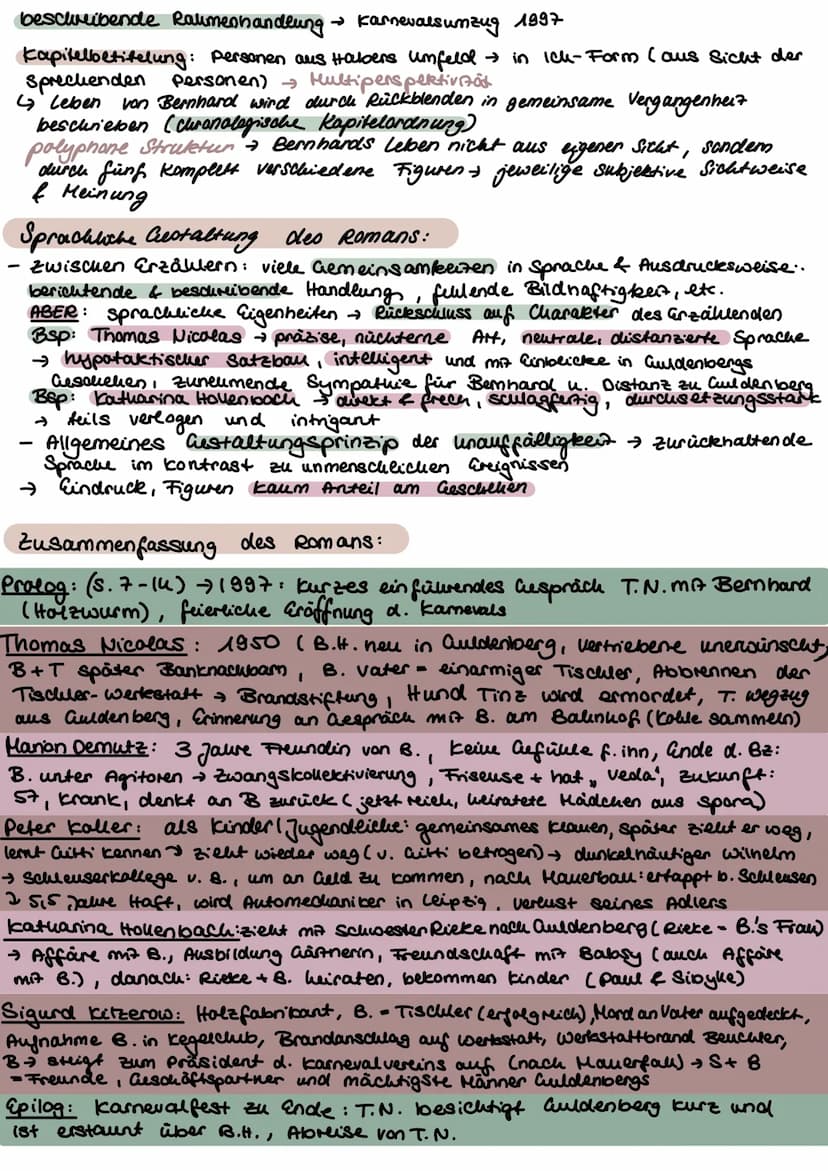 beschreibende Rahmenhandlung → Karnevalsumzug 1997
Kapitelbetitelung: Personen aus Habers Umfeld → in Ich-Form (aus Sicht der
sprechenden Personen) → Multiperspektivität
↳ Leben von Bernhard wird durch Rückblenden in gemeinsame Vergangenheit
beschrieben (chronologische Kapitelordnung)
polyphone Struktur → Bernhards Leben nicht aus eigener Sicht, sondern
durch fünf komplett verschiedene Figuren → jeweilige subjektive Sichtweise
& Meinung
Sprachliche Gestaltung des Romans:
- zwischen Erzählern: viele Gemeinsamkeiten in Sprache & Ausdrucksweise:
berichtende & beschreibende Handlung, fehlende Bildhaftigkeit, etc.
ABER: sprachliche Eigenheiten → Rückschluss auf Charakter des Erzählenden
Bsp: Thomas Nicolas → präzise, nüchterne Art, neutrale, distanzierte Sprache
→ hypotaktischer Satzbau, intelligent und mit Einblicke in Guldenbergs
Geschehen, zunehmende Sympathie für Bernhard u. Distanz zu Guldenberg
Bsp: Katharina Hollenbach → direkt & frech, schlagfertig, durchsetzungsstark
→ teils verlogen und intrigant
- Allgemeines Gestaltungsprinzip der Unauffälligkeit → zurückhaltende
Sprache im Kontrast zu unmenschlichen Ereignissen
→ Eindruck, Figuren kaum Anteil am Geschehen
Zusammenfassung des Romans:
Prolog: (S. 7-14) → 1997: kurzes einführendes Gespräch T.N. mit Bernhard
(Holzwurm), feierliche Eröffnung d. Karnevals
Thomas Nicolas: 1950 (B.H. neu in Guldenberg, Vertriebene unerwünscht,
B+T später Banknachbarn, B. Vater = einarmiger Tischler, Abbrennen der
Tischler-Werkstatt → Brandstiftung, Hund Tinz wird ermordet, T. Wegzug
aus Guldenberg, Erinnerung an Gespräch mit B. am Bahnhof (Kohle sammeln)
Marion Demutz: 3 Jahre Freundin von B., keine Gefühle f. ihn, Ende d. Bz:
B. unter Agitoren → Zwangskollektivierung, Friseuse + hat „Veda", Zukunft:
57, krank, denkt an B zurück (jetzt reich, heiratete Mädchen aus Spora)
Peter Koller: als Kinder/Jugendliche: gemeinsames Klauen, später zieht er weg,
lernt Gitti kennen → zieht wieder weg (v. Gitti betrogen) → dunkelhäutiger Wilhelm
→ Schleuserkollege v. B., um an Geld zu kommen, nach Mauerbau: ertappt b. Schleusen
→ 5,5 Jahre Haft, wird Automechaniker in Leipzig, Verlust seines Adlers
Katharina Hollenbach: zieht mit Schwester Rieke nach Guldenberg (Rieke = B.'s Frau)
→ Affäre mit B., Ausbildung Gärtnerin, Freundschaft mit Babsy (auch Affäre
mit B.), danach: Rieke + B. heiraten, bekommen Kinder (Paul & Sibylle)
Sigurd Kitzerow: Holzfabrikant, B. = Tischler (erfolgreich), Mord an Vater aufgedeckt,
Aufnahme B. in Kegelclub, Brandanschlag auf Werkstatt, Werkstattbrand Beuchler,
B → steigt zum Präsident d. Karnevalvereins auf (nach Mauerfall) → S + B
= Freunde, Geschäftspartner und mächtigste Männer Guldenbergs
Epilog: Karnevalfest zu Ende: T.N. besichtigt Guldenberg kurz und
ist erstaunt über B.H., Abreise von T.N.